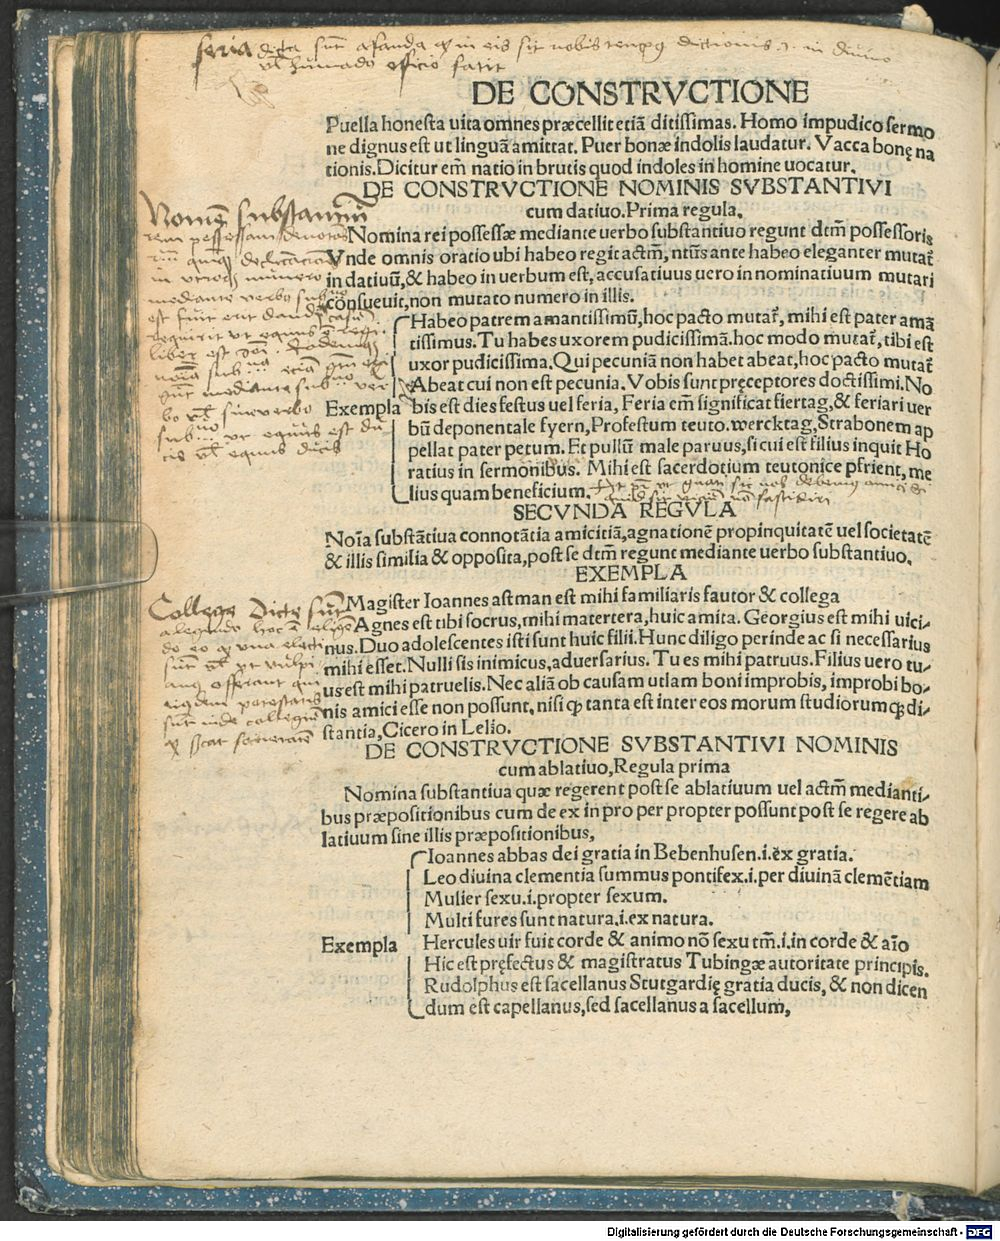 feria dicta sunt a fanda in eis sit nobis dictionis in divino
vel humano officio
DE CONSTRVCTIONE
Puella honesta uita omnes præcellit etiā ditissimas. Homo impudico sermo
ne dignus est ut linguā amittat. Puer bonæ indolis laudatur. Vacca bonę na
tionis. Dicitur em̄ natio in brutis quod indoles in homine uocatur.
DE CONSTRVCTIONE NOMINIS SVBSTANTIVI
cum datiuo. Prima regula.
Nomina rei possessæ mediante uerbo substantiuo regunt dtm̄ possessoris
Vnde omnis oratio ubi habeo regit actm̄, ntūs ante habeo eleganter mutat̄
in datiuū, & habeo in uerbum est, accusatiuus uero in nominatiuum mutari
cōsueuit, non mutato numero in illis.
Habeo patrem amantissimū, hoc pacto mutat̄, mihi est pater amā
tissimus. Tu habes uxorem pudicissimā. hoc modo mutat̄, tibi est
uxor pudicissima. Qui pecuniā non habet abeat, hoc pacto mutat̄
Abeat cui non est pecunia. Vobis sunt pręceptores doctissimi. No
Exempla bis est dies festus uel feria, Feria em̄ significat fiertag, & feriari uer
bū deponentale fyern, Profestum teuto. wercktag, Strabonem ap
pellat pater petum. Et pullū male paruus, si cui est filius inquit Ho
ratius in sermonibus. Mihi est sacerdotium teutonice pfrient, me
lius quam beneficium.
SECVNDA REGVLA
Noīa substātiua connotātia amicitiā, agnationē propinquitatē uel societatē
& illis similia & opposita, post se dtm̄ regunt mediante uerbo substantiuo.
EXEMPLA
Magister Ioannes astman est mihi familiaris fautor & collega
Agnes est tibi socrus, mihi matertera, huic amita. Georgius est mihi uici-
nus. Duo adolescentes isti sunt huic filii. Hunc diligo perinde ac si necessarius
mihi esset. Nulli sis inimicus, aduersarius. Tu es mihi patruus. Filius uero tu-
us est mihi patruelis. Nec aliā ob causam utlam boni improbis, improbi bo-
nis amici esse non possunt, nisi ꝙ tanta est inter eos morum studiorumqꝫ di-
stantia, Cicero in Lelio.
DE CONSTRVCTIONE SVBSTANTIVI NOMINIS
cum ablatiuo, Regula prima
Nomina substantiua quæ regerent post se ablatiuum uel actm̄ medianti-
bus præpositionibus cum de ex in pro per propter possunt post se regere ab
latiuum sine illis præpositionibus,
Ioannes abbas dei gratia in Bebenhusen .i. ex gratia.
Leo diuina clementia summus pontifex .i. per diuinā clemētiam
Mulier sexu .i. propter sexum.
Multi fures sunt natura .i. ex natura.
Exempla Hercules uir fuit corde & animo nō sexu tm̄ .i. in corde & aīo
Hic est pręfectus & magistratus Tubingæ autoritate principis.
Rudolphus est sacellanus Stutgardię gratia ducis, & non dicen
dum est capellanus, sed sacellanus a sacellum,
Nomen substantiuum
rem possessam denotans
in utroque numero
mediante verbo
est fuit erit
liber est
bo vel sine verbo
ut equus est du
cis vel equus ducis
Collegę Dicte sunt
a legendo
Digitalisierung gefördert durch die Deutsche Forschungsgemeinschaft - DFG